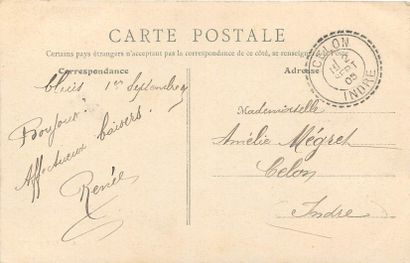 CARTE POSTALE
Certains pays étrangers n'acceptant pas la correspondance de ce côté, se renseigner
Correspondance
Adresse
CELON
2
SEPT
05
INDRE
1er Septembre
Bonjour
Affectueux baisers.
Renée
Mademoiselle
Amélie Mégret
Celon
Indre